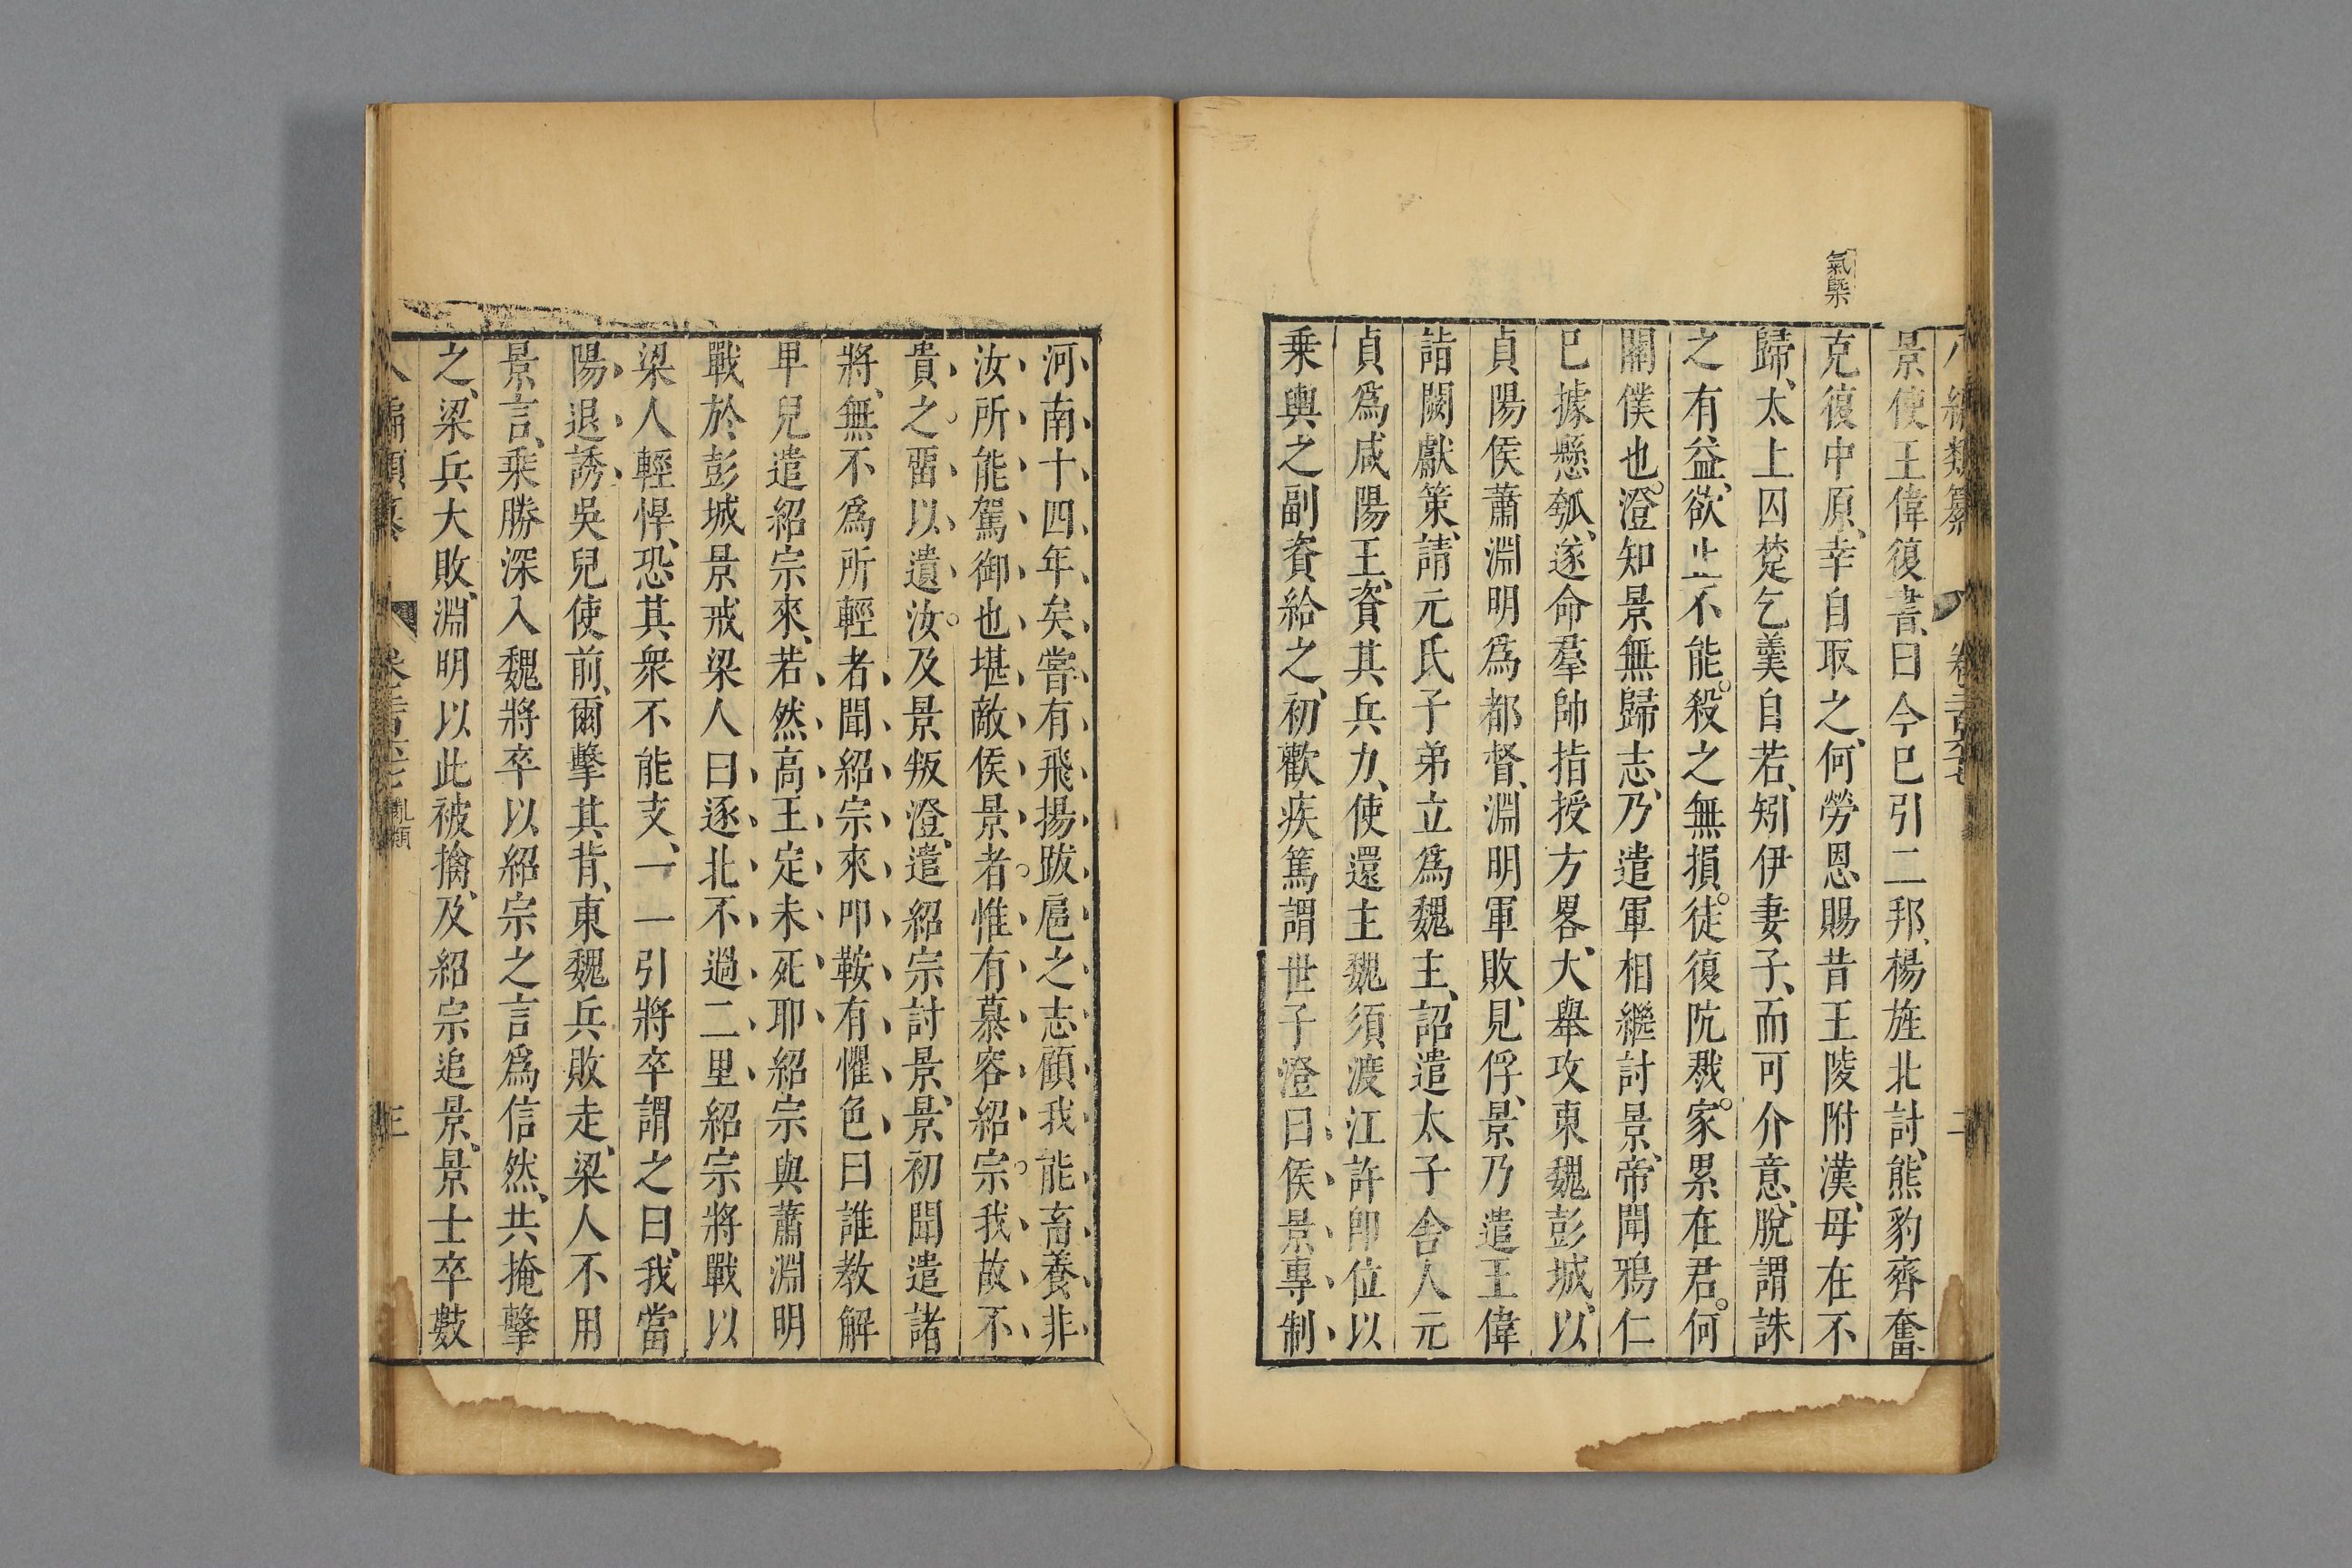 氣槩
八編類纂
卷二百六七
二
景使王偉復書曰今已引二邦楊旌北討熊豹齊奮
克復中原幸自取之何勞恩賜昔王陵附漢母在不
歸太上囚楚乞羹自若矧伊妻子而可介意脫謂誅
之有益欲止不能殺之無損徒復阬戮家累在君何
關僕也澄知景無歸志乃遣軍相繼討景帝聞鴉仁
已據懸瓠遂命羣帥指授方畧大舉攻東魏彭城以
貞陽侯蕭淵明爲都督淵明軍敗見俘景乃遣王偉
詣闕獻策請元氏子弟立爲魏主詔遣太子舍人元
貞爲咸陽王資其兵力使還主魏須渡江許卽位以
乘輿之副資給之初歡疾篤謂世子澄曰侯景專制
河南十四年矣嘗有飛揚跋扈之志顧我能畜養非
汝所能駕御也堪敵侯景者惟有慕容紹宗我故不
貴之畱以遺汝及景叛澄遣紹宗討景景初聞遣諸
將無不爲所輕者聞紹宗來叩鞍有懼色曰誰教解
甲兒遣紹宗來若然高王定未死耶紹宗與蕭淵明
戰於彭城景戒梁人曰逐北不過二里紹宗將戰以
梁人輕悍恐其衆不能支一一引將卒謂之曰我當
陽退誘吳兒使前爾擊其背東魏兵敗走梁人不用
景言乘勝深入魏將卒以紹宗之言爲信然共掩擊
之梁兵大敗淵明以此被擒及紹宗追景景士卒數
八編類纂
亂類
三